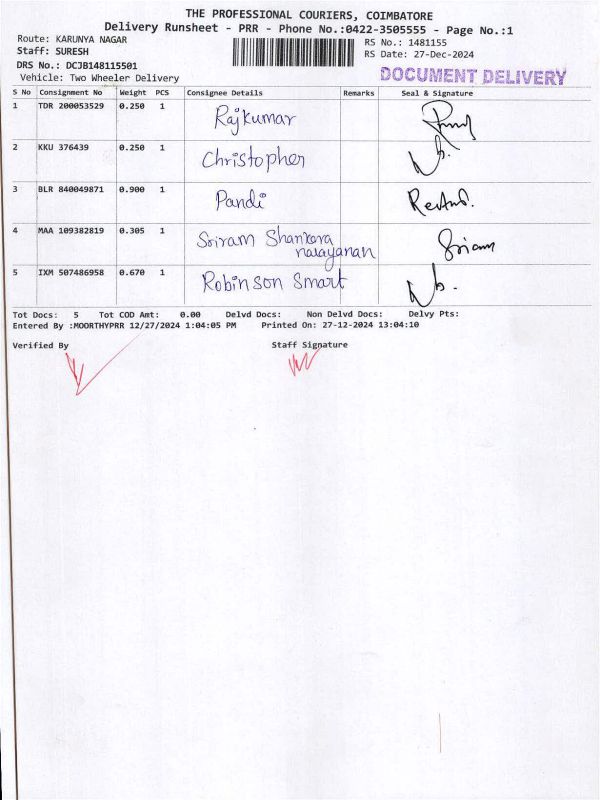 THE PROFESSIONAL COURIERS, COIMBATORE
Delivery Runsheet - PRR - Phone No.:0422-3505555 - Page No.:1
Route: KARUNYA NAGAR RS No.: 1481155
Staff: SURESH RS Date: 27-Dec-2024
DRS No.: DCJB148115501
Vehicle: Two Wheeler Delivery DOCUMENT DELIVERY
S No Consignment No Weight PCS Consignee Details Remarks Seal & Signature
1 TDR 200053529 0.250 1 Rajkumar
2 KKU 376439 0.250 1 Christopher
3 BLR 840049871 0.900 1 Pandi
4 MAA 109382819 0.305 1 Sriram Shankara Sriram
narayanan
5 IXM 507486958 0.670 1 Robinson Smart
Tot Docs: 5 Tot COD Amt: 0.00 Delvd Docs: Non Delvd Docs: Delvy Pts:
Entered By :MOORTHYPRR 12/27/2024 1:04:05 PM Printed On: 27-12-2024 13:04:10
Verified By Staff Signature